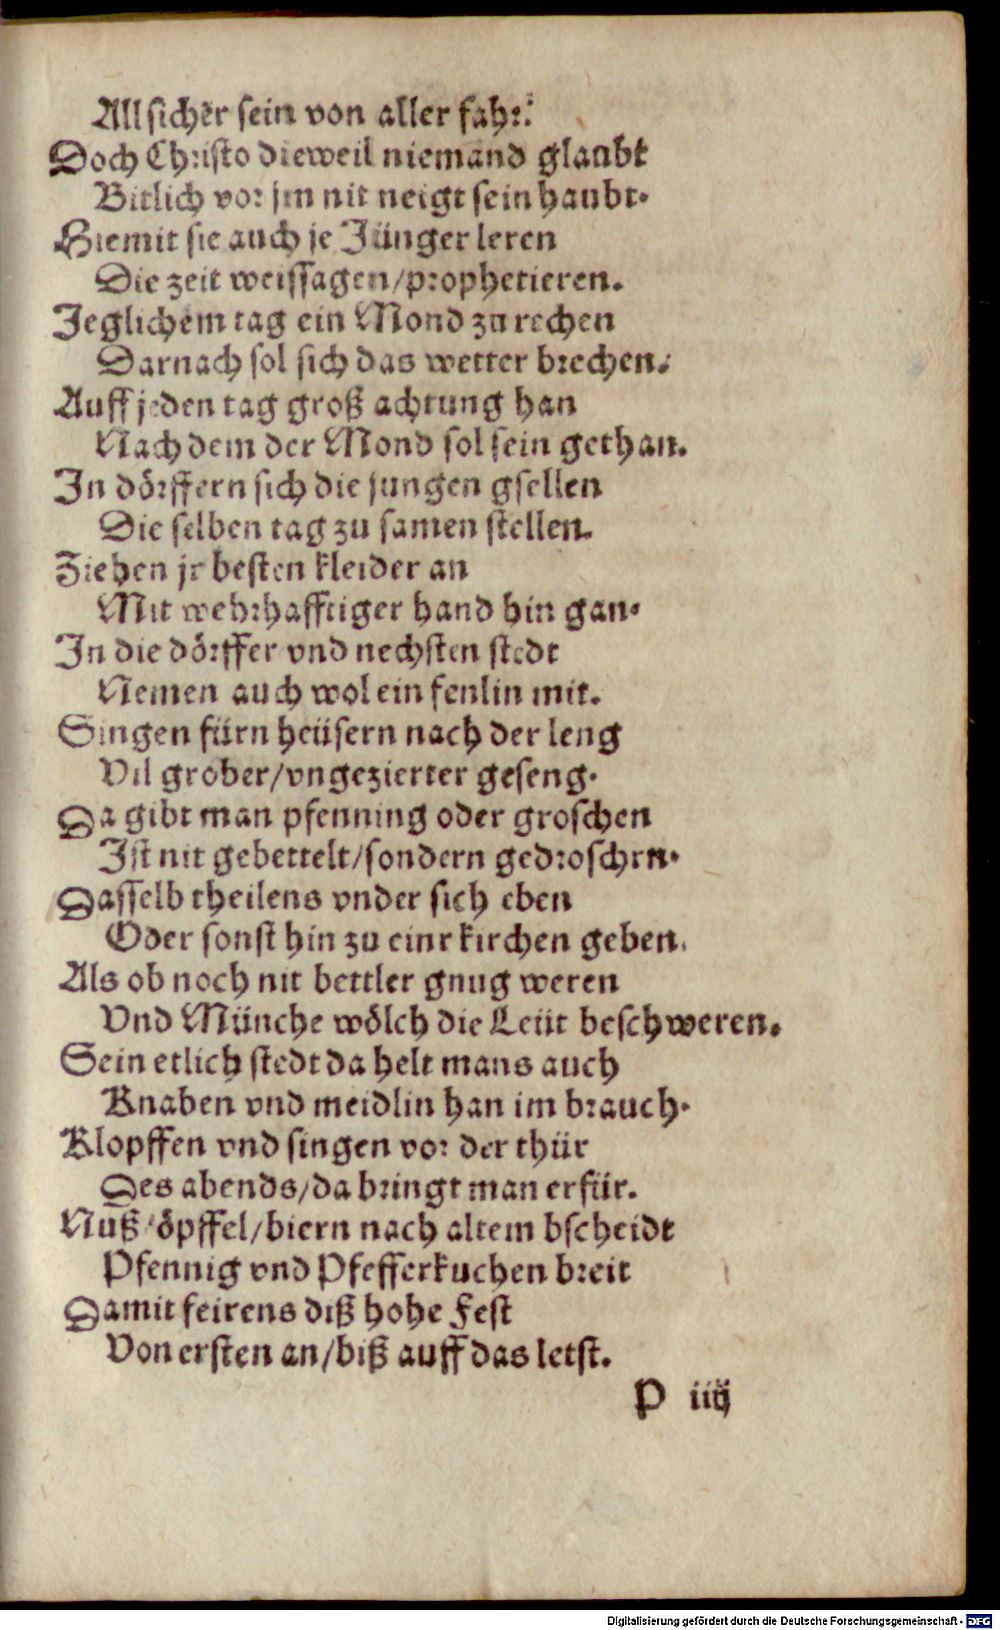 All sicher sein von aller fahr.
Doch Christo dieweil niemand glaubt
Bitlich vor jm nit neigt sein haubt.
Hiemit sie auch je Jünger leren
Die zeit weissagen/prophetieren.
Jeglichem tag ein Mond zu rechen
Darnach sol sich das wetter brechen.
Auff jeden tag groß achtung han
Nach dem der Mond sol sein gethan.
In dörffern sich die jungen gsellen
Die selben tag zu samen stellen.
Ziehen jr besten kleider an
Mit wehrhafftiger hand hin gan.
In die dörffer vnd nechsten stedt
Nemen auch wol ein fenlin mit.
Singen fürn heüsern nach der leng
Vil grober/vngezierter geseng.
Da gibt man pfenning oder groschen
Ist nit gebettelt/sondern gedroschen.
Dasselb theilens vnder sich eben
Oder sonst hin zu einr kirchen geben.
Als ob noch nit bettler gnug weren
Vnd Münche wölch die Leüt beschweren.
Sein etlich stedt da helt mans auch
Knaben vnd meidlin han im brauch.
Klopffen vnd singen vor der thür
Des abends/da bringt man erfür.
Nuß/öpffel/biern nach altem bscheidt
Pfennig vnd Pfefferkuchen breit
Damit feirens diß hohe Fest
Von ersten an/biß auff das letst.
P iiij
Digitalisierung gefördert durch die Deutsche Forschungsgemeinschaft - DFG